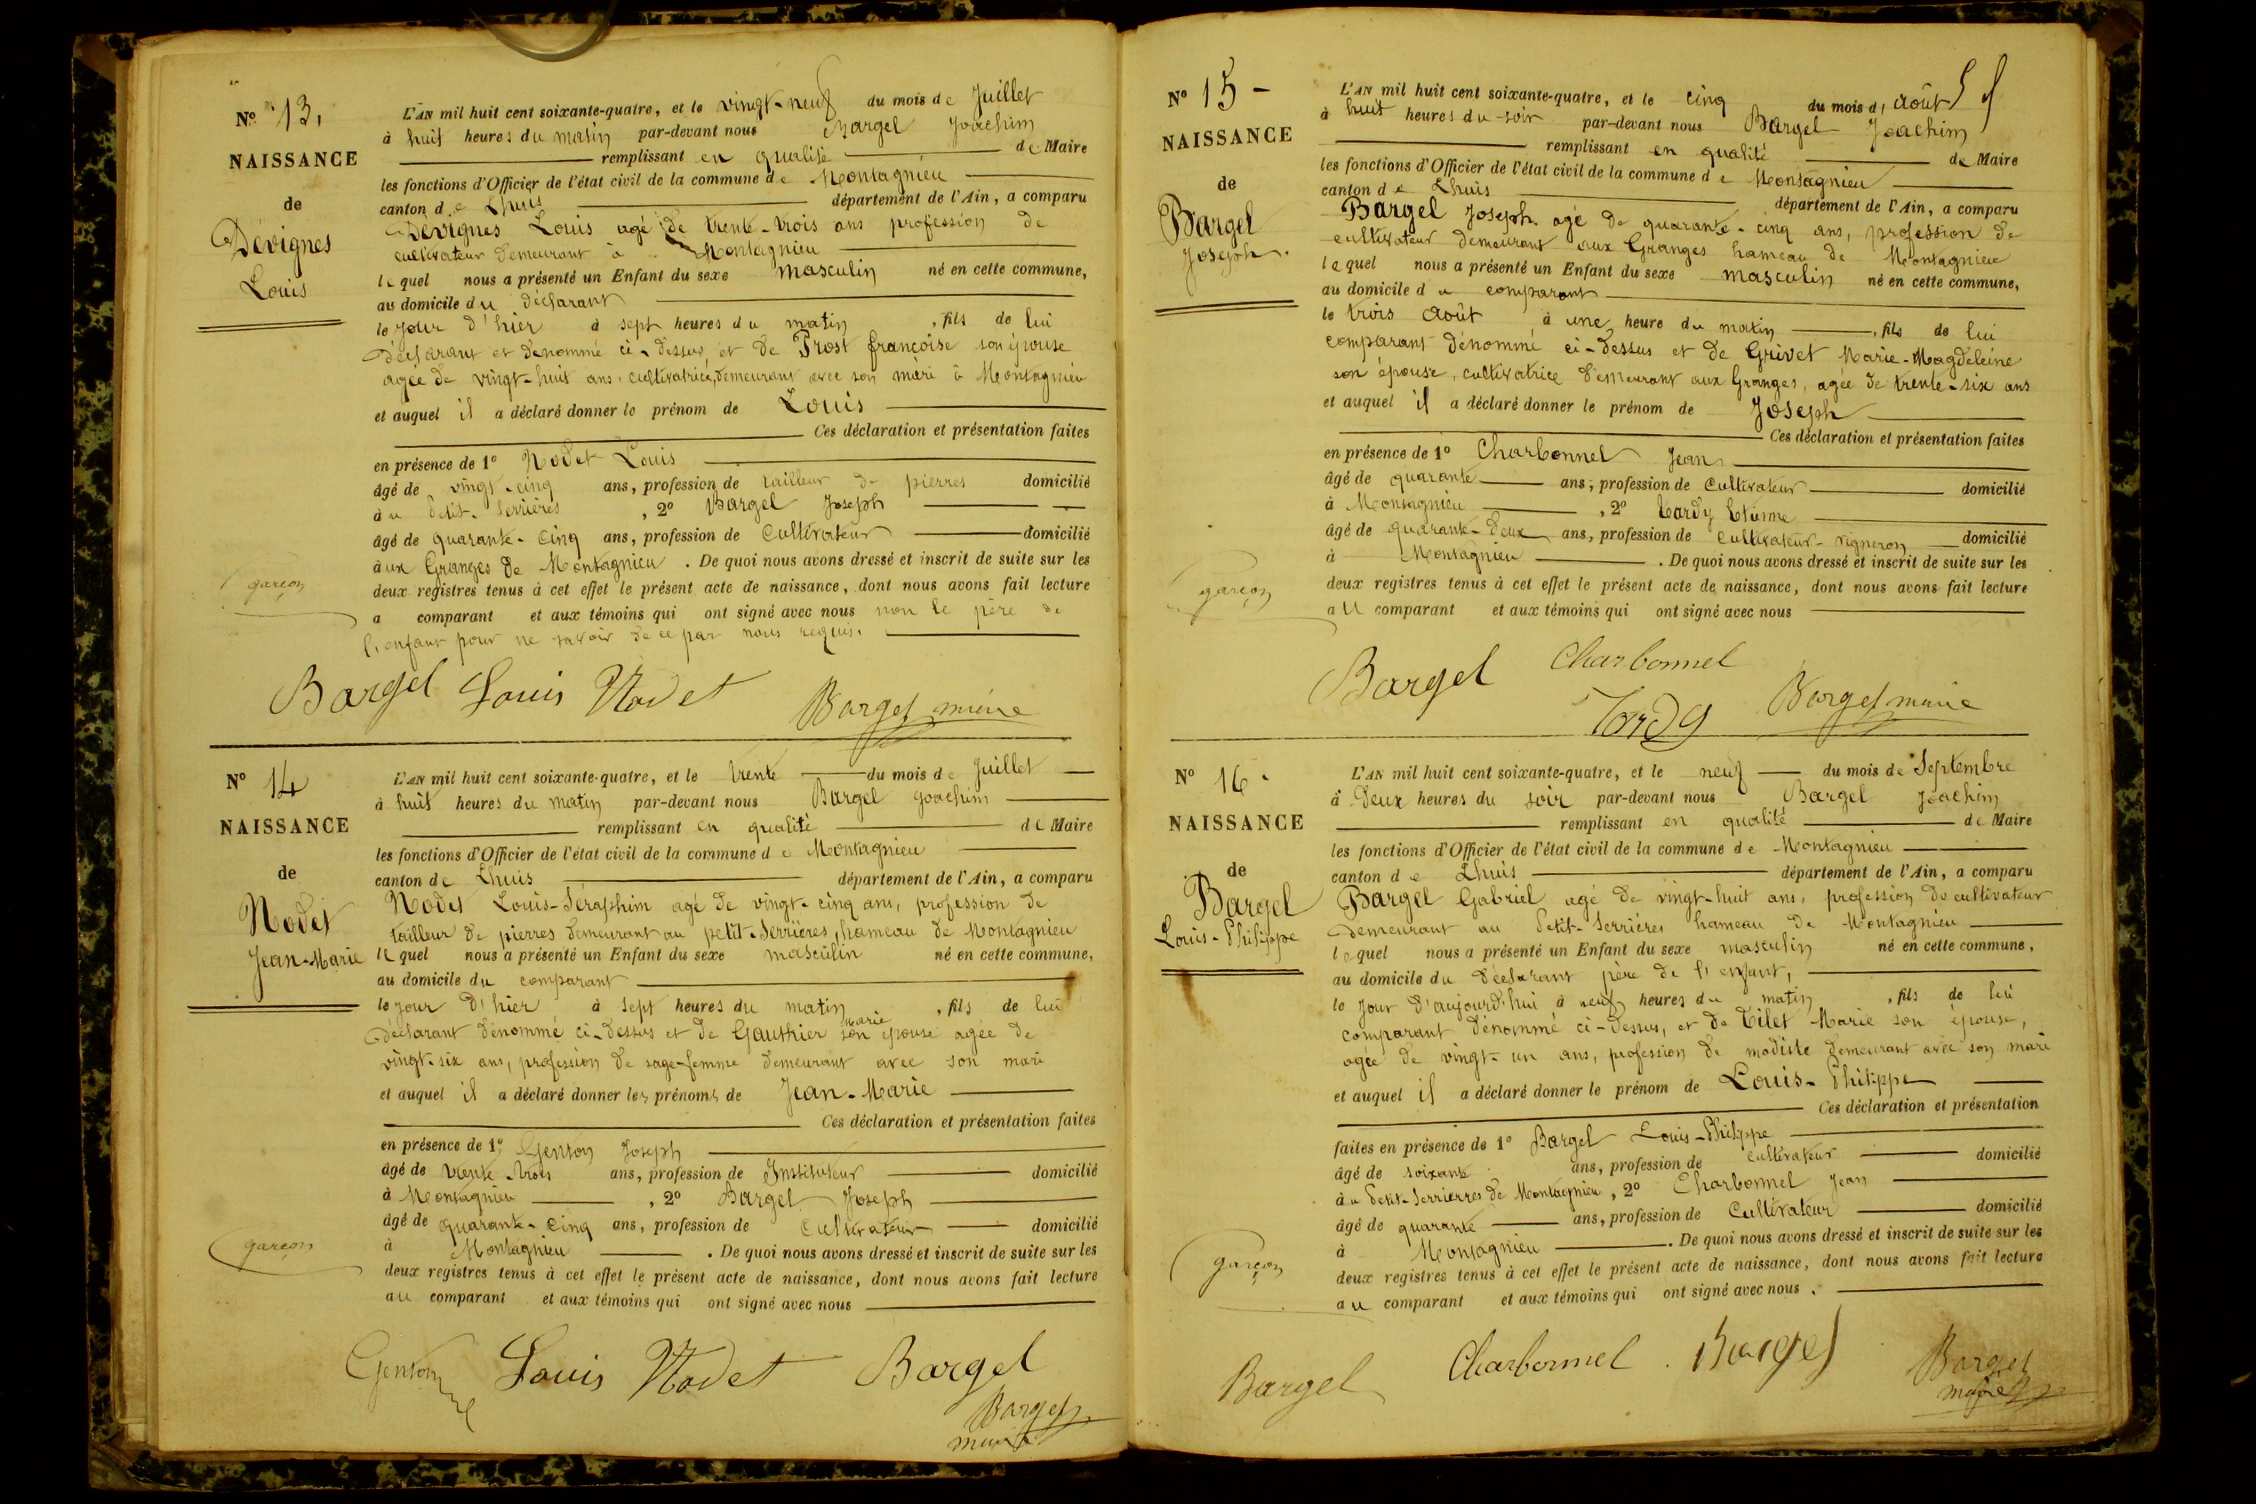 Nº 13,
NAISSANCE
de
Dévignes
Louis
L'AN mil huit cent soixante-quatre, et le vingt-neuf du mois de Juillet
à huit heures du matin par-devant nous Bargel Joachim
remplissant en qualité de Maire
les fonctions d'Officier de l'état civil de la commune de Montagnieu
canton de Lhuis département de l'Ain, a comparu
Dévignes Louis agé de trente-trois ans profession de
cultivateur demeurant à Montagnieu
lequel nous a présenté un Enfant du sexe masculin né en cette commune,
au domicile du déclarant
le jour d'hier à sept heures du matin, fils de lui
déclarant et dénommé ci-dessus, et de Prost françoise son épouse
agée de vingt-huit ans, cultivatrice, demeurant avec son mari à Montagnieu
et auquel il a déclaré donner le prénom de Louis
Ces déclaration et présentation faites
en présence de 1º Nodet Louis
âgé de vingt-cinq ans, profession de tailleur de pierres domicilié
au Petit-Serrières, 2º Bargel Joseph
âgé de quarante-cinq ans, profession de Cultivateur domicilié
aux Granges de Montagnieu. De quoi nous avons dressé et inscrit de suite sur les
garçon
deux registres tenus à cet effet le présent acte de naissance, dont nous avons fait lecture
a comparant et aux témoins qui ont signé avec nous non le père de
l'enfant pour ne savoir de ce par nous requis.
Bargel Louis Nodet Bargel maire
Nº 14
NAISSANCE
de
Nodet
Jean-Marie
L'AN mil huit cent soixante-quatre, et le trente du mois de Juillet
à huit heures du matin par-devant nous Bargel Joachim
remplissant en qualité de Maire
les fonctions d'Officier de l'état civil de la commune de Montagnieu
canton de Lhuis département de l'Ain, a comparu
Nodet Louis-Séraphim agé de vingt-cinq ans, profession de
tailleur de pierres demeurant au petit-Serrières, hameau de Montagnieu
lequel nous a présenté un Enfant du sexe masculin né en cette commune,
au domicile du comparant
le jour d'hier à sept heures du matin, fils de lui
déclarant dénommé ci-dessus et de Gauthier Marie son épouse agée de
vingt-six ans, profession de sage-femme demeurant avec son mari
et auquel il a déclaré donner les prénoms de Jean-Marie
Ces déclaration et présentation faites
en présence de 1º Genton Joseph
âgé de trente-trois ans, profession de Instituteur domicilié
à Montagnieu, 2º Bargel Joseph
âgé de quarante-cinq ans, profession de Cultivateur domicilié
à Montagnieu. De quoi nous avons dressé et inscrit de suite sur les
garçon
deux registres tenus à cet effet le présent acte de naissance, dont nous avons fait lecture
au comparant et aux témoins qui ont signé avec nous
Genton Louis Nodet Bargel
Bargel
maire
Nº 15 -
NAISSANCE
de
Bargel
Joseph.
L'AN mil huit cent soixante-quatre, et le cinq du mois d'août
à huit heures du soir par-devant nous Bargel Joachim
remplissant en qualité de Maire
les fonctions d'Officier de l'état civil de la commune de Montagnieu
canton de Lhuis département de l'Ain, a comparu
Bargel Joseph agé de quarante-cinq ans, profession de
cultivateur demeurant aux Granges hameau de Montagnieu
lequel nous a présenté un Enfant du sexe masculin né en cette commune,
au domicile du comparant
le trois Août à une heure du matin, fils de lui
comparant dénommé ci-dessus et de Grivet Marie-Magdeleine
son épouse, cultivatrice demeurant aux Granges, agée de trente-six ans
et auquel il a déclaré donner le prénom de Joseph
Ces déclaration et présentation faites
en présence de 1º Charbonnel Jean
âgé de quarante ans, profession de Cultivateur domicilié
à Montagnieu, 2º Tardy Etienne
âgé de quarante-deux ans, profession de cultivateur-vigneron domicilié
à Montagnieu. De quoi nous avons dressé et inscrit de suite sur les
garçon
deux registres tenus à cet effet le présent acte de naissance, dont nous avons fait lecture
au comparant et aux témoins qui ont signé avec nous
Bargel Charbonnel
Tardy Bargel maire
Nº 16.
NAISSANCE
de
Bargel
Louis-Philippe
L'AN mil huit cent soixante-quatre, et le neuf du mois de Septembre
à deux heures du soir par-devant nous Bargel Joachim
remplissant en qualité de Maire
les fonctions d'Officier de l'état civil de la commune de Montagnieu
canton de Lhuis département de l'Ain, a comparu
Bargel Gabriel agé de vingt-huit ans, profession de cultivateur
demeurant au Petit-Serrières hameau de Montagnieu
lequel nous a présenté un Enfant du sexe masculin né en cette commune,
au domicile du déclarant père de l'enfant,
le jour d'aujourd'hui à neuf heures du matin, fils de lui
comparant dénommé ci-dessus, et de Tilet Marie son épouse,
agée de vingt-un ans, profession de modiste demeurant avec son mari
et auquel il a déclaré donner le prénom de Louis-Philippe
Ces déclaration et présentation
faites en présence de 1º Bargel Louis-Philippe
âgé de soixante ans, profession de cultivateur domicilié
au Petit-Serrierres de Montagnieu, 2º Charbonnel Jean
âgé de quarante ans, profession de Cultivateur domicilié
à Montagnieu. De quoi nous avons dressé et inscrit de suite sur les
garçon
deux registres tenus à cet effet le présent acte de naissance, dont nous avons fait lecture
au comparant et aux témoins qui ont signé avec nous.
Bargel Charbonnel. Bargel Bargel
maire